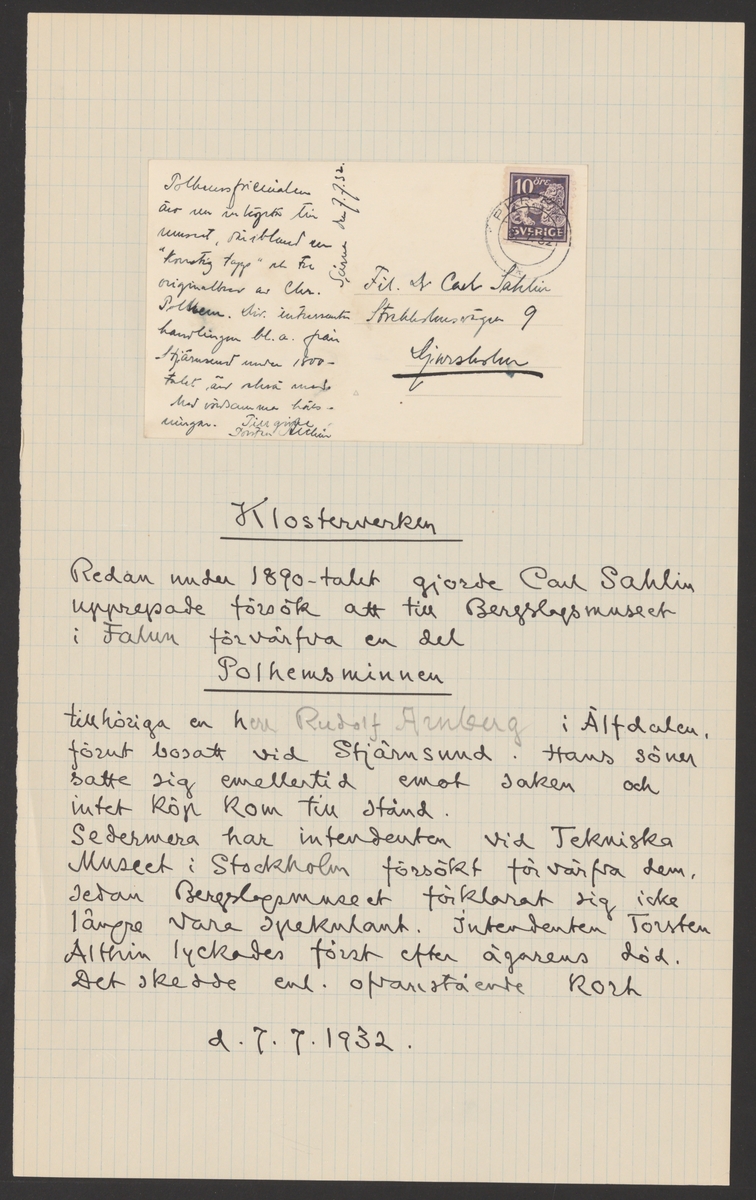 Polhemsföremålen
äro nu inköpta till
museet, däribland en
"konstig tapp" och tre
originalbrev av Chr.
Polhem. Div. intressanta
handlingar bl. a. från
Stjärnsund under 1800-
talet, äro också med.
Med vördsamma häls-
ningar. Tillgivne
Torsten Althin
Särna den 7.7.32.
10 ÖRE
SVERIGE
Fil. Dr Carl Sahlin
Stockholmsvägen 9
Djursholm
Klosterverken
Redan under 1890-talet gjorde Carl Sahlin
upprepade försök att till Bergslagsmuseet
i Falun förvärfva en del
Polhemsminnen
tillhöriga en herr Rudolf Arnberg i Älfdalen,
förut bosatt vid Stjärnsund. Hans söner
satte sig emellertid emot saken och
intet köp kom till stånd.
Sedermera har intendenten vid Tekniska
Museet i Stockholm försökt förvärfva dem,
sedan Bergslagsmuseet förklarat sig icke
längre vara spekulant. Intendenten Torsten
Althin lyckades först efter ägarens död.
Det skedde enl. ofvanstående kort
d. 7. 7. 1932.